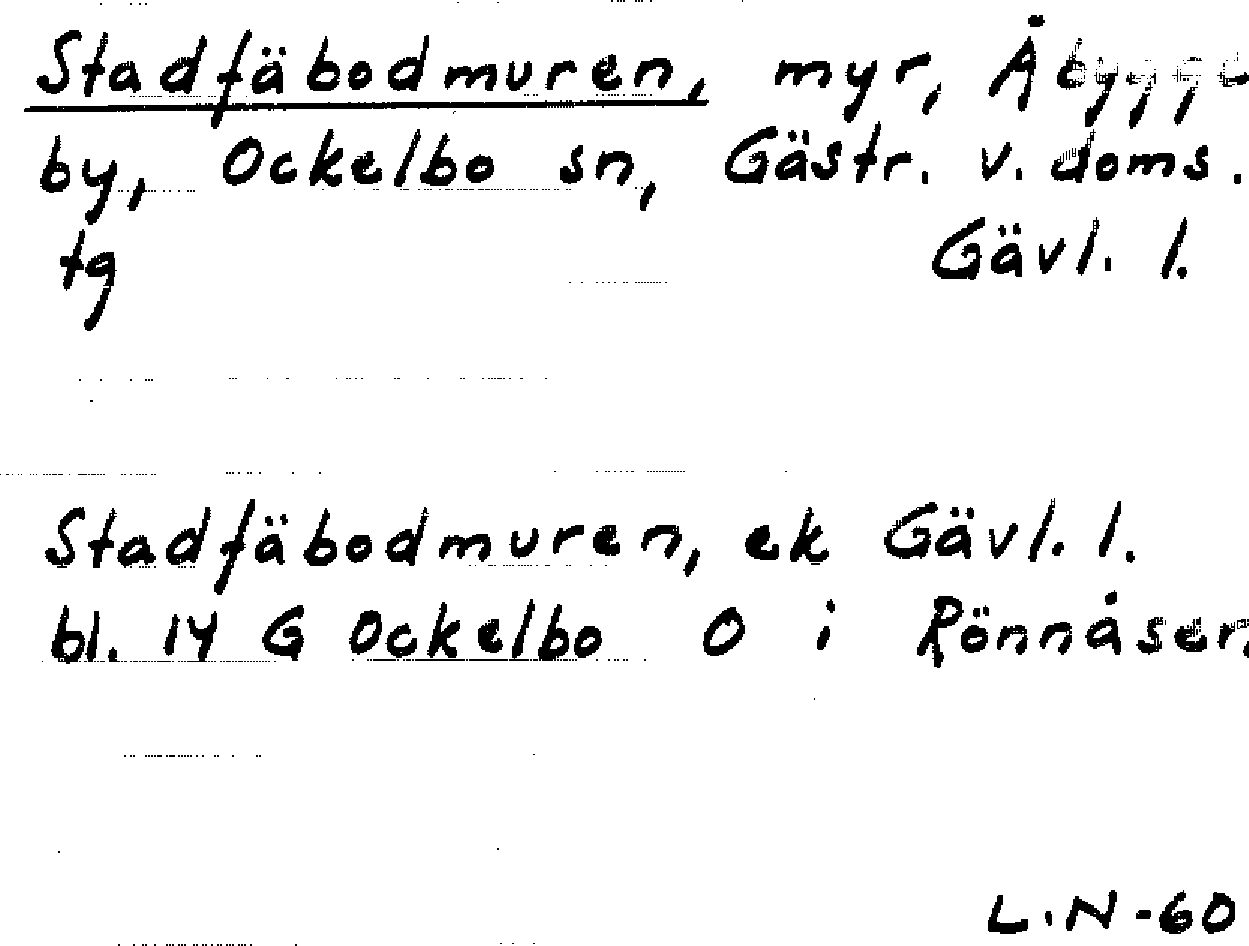 Stadfäbodmuren, myr, Åbygge
by, Ockelbo sn, Gästr. v. doms.
tg Gävl. l.
Stadfäbodmuren, ek Gävl. l.
bl. 14 G Ockelbo O i Rönnåsen
L.N-60